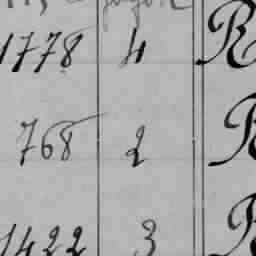 1778 4 R
768 2 R
1422 3 R